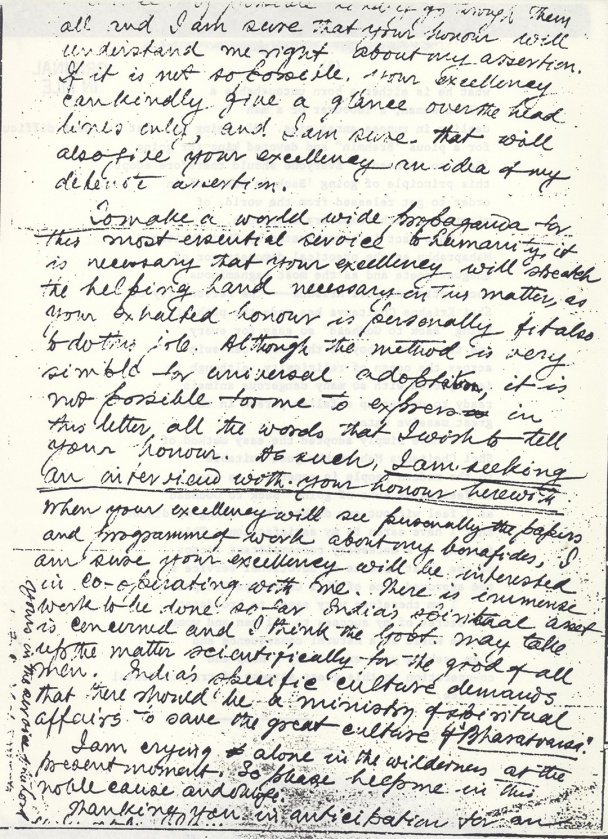 them
all and I am sure that your honour will
understand me right about my assertion.
If it is not so possible. Your excellency
can kindly give a glance over the head
lines only, and I am sure that will
also give your excellency an idea of my
definite assertion.
To make a world wide propaganda for
this most essential service to humanity, it
is necessary that your excellency will stretch
the helping hand necessary in this matter, as
your exhalted honour is personally fit also
to do this job. Although the method is very
simple for universal adoption, it is
not possible for me to express in
this letter, all the words that I wish to tell
your honour. As such, I am seeking
an interview with your honour herewith
when your excellency will see personally the papers
and programmed work about my bonafides, I
am sure your excellency will be interested
in co-operating with me. There is immense
work to be done so far India's spiritual asset
is concerned and I think the govt. may take
up the matter scientifically for the good of all
men. India's specific culture demands
that there should be a ministry of spiritual
affairs to save the great culture of "Bharatvarsa."
I am crying alone in the wilderness at the
present moment. So please help me in this
noble cause and oblige.
Thanking you in anticipation for an
Yours in the service of the Lord